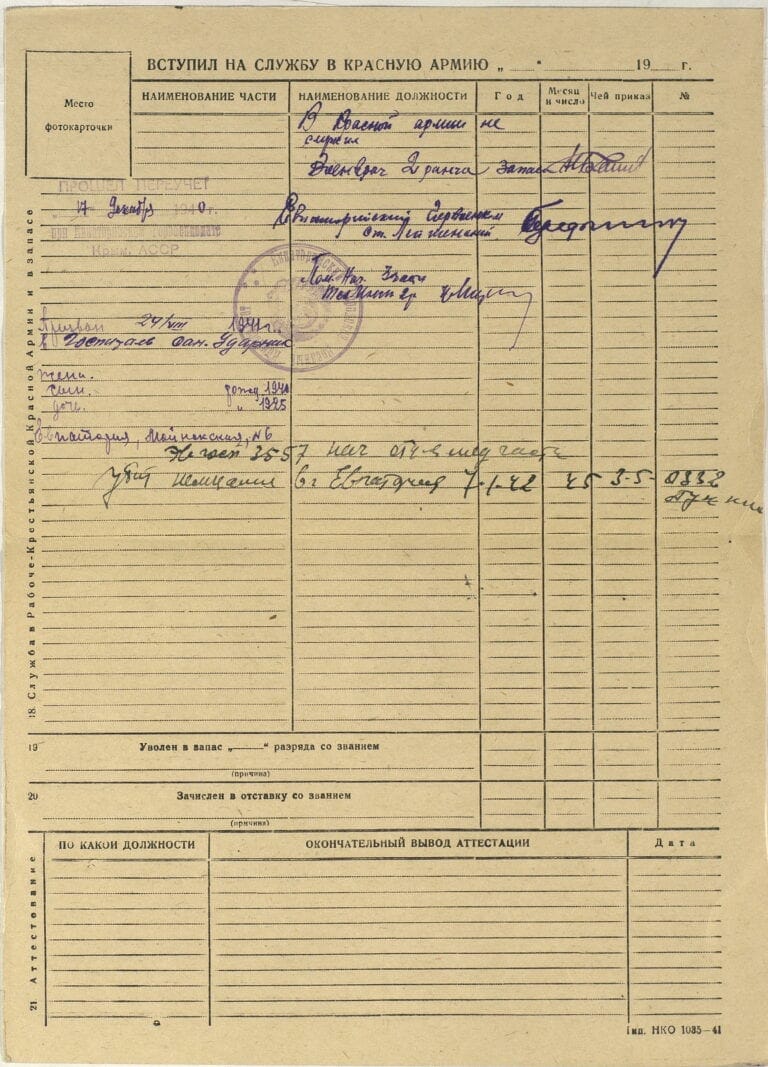 ВСТУПИЛ НА СЛУЖБУ В КРАСНУЮ АРМИЮ „ “ 19 г.
Место
фотокарточки
НАИМЕНОВАНИЕ ЧАСТИ НАИМЕНОВАНИЕ ДОЛЖНОСТИ Год Месяц и число Чей приказ №
В Красной армии не
служил
Военврач 2 ранга запаса
ПРОШЕЛ ПЕРЕУЧЕТ
„17 Декабря 1940 г.
Крым. АССР
Евпаторийский Горвоенком
ст. Лейтенант
Пом. Нач. 3 части
Призван 24/VIII 1941 г.
в Госпиталь сан. Ударник
жена.
сын. рожд. 1920
дочь. " 1925
Евпатория, Мойнакская, №6
3557 нач мед части
убит немцами в г Евпатория 7-1-42 45 3-5- 0332
18. Служба в Рабоче-Крестьянской Красной Армии и в запасе
19 Уволен в запас „ “ разряда со званием
(причина)
20 Зачислен в отставку со званием
(причина)
21 Аттестование
ПО КАКОЙ ДОЛЖНОСТИ ОКОНЧАТЕЛЬНЫЙ ВЫВОД АТТЕСТАЦИИ Дата
Тип. НКО 1035—41